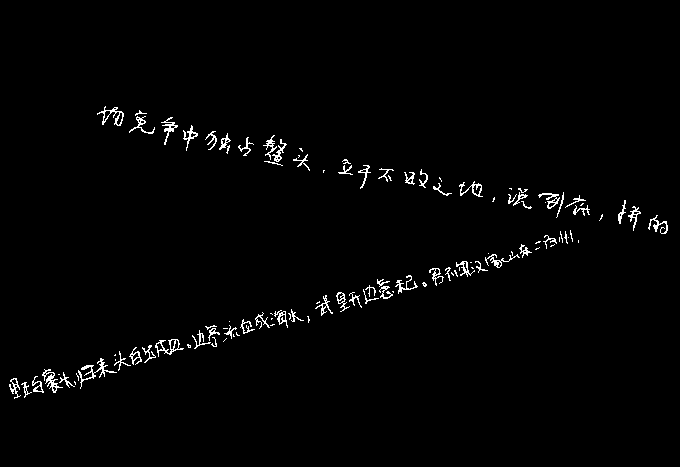 场竞争中独占鳌头，立于不败之地，说到底，拼的
里正与裹头，归来头白还戍边。边亭流血成海水，武皇开边意未已。君不闻汉家山东二百州，